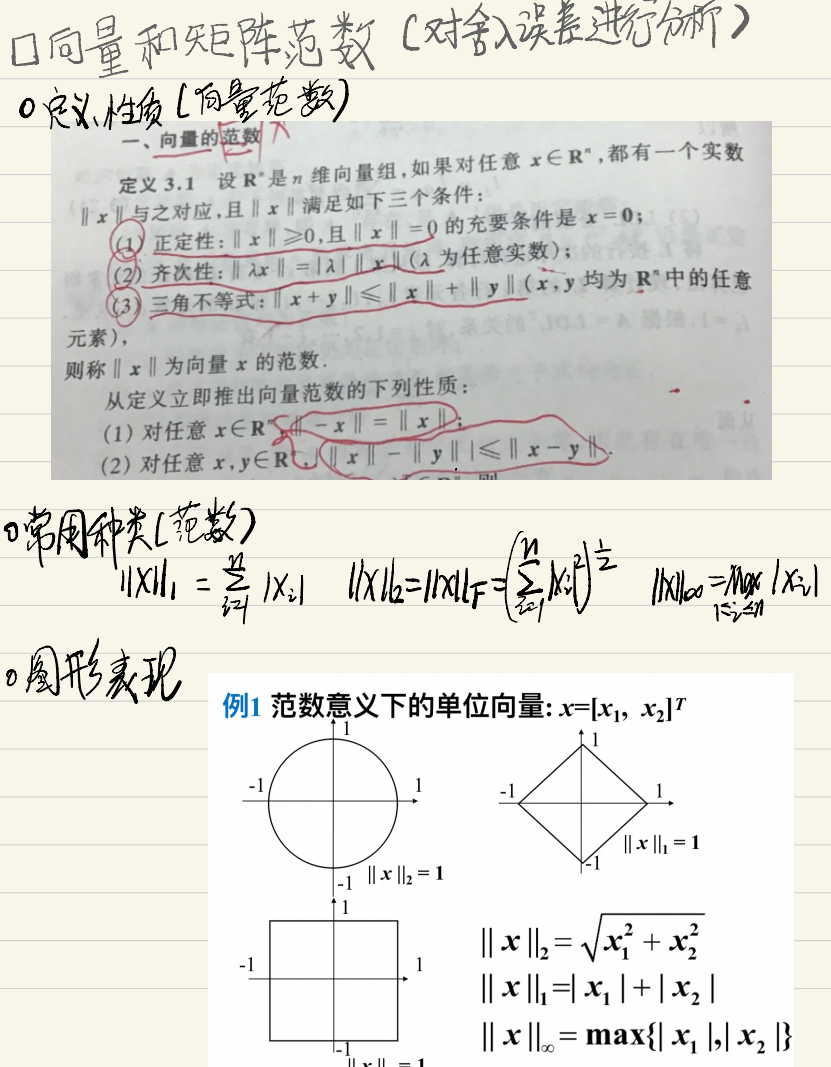 □向量和矩阵范数(对舍入误差进行分析)
定义、性质(向量范数)
一、向量的范数
定义 3.1 设 Rⁿ 是 n 维向量组,如果对任意 x∈Rⁿ,都有一个实数
‖x‖与之对应,且‖x‖满足如下三个条件:
(1) 正定性:‖x‖≥0,且‖x‖=0 的充要条件是 x=0;
(2) 齐次性:‖λx‖=|λ|‖x‖(λ 为任意实数);
(3) 三角不等式:‖x+y‖≤‖x‖+‖y‖(x,y 均为 Rⁿ 中的任意
元素),
则称‖x‖为向量 x 的范数.
从定义立即推出向量范数的下列性质:
(1) 对任意 x∈Rⁿ,‖-x‖=‖x‖;
(2) 对任意 x,y∈Rⁿ,|‖x‖-‖y‖|≤‖x-y‖.
常用种类(范数)
‖X‖₁ = Σⁿᵢ₌₁ |Xᵢ| ‖X‖₂=‖X‖F=(Σⁿᵢ₌₁ |Xᵢ|²)^½ ‖X‖∞=max 1≤i≤n |Xᵢ|
图形表现
例1 范数意义下的单位向量: x=[x₁, x₂]ᵀ
1
-1 1
-1
‖x‖₂ = 1
1
-1 1
-1
‖x‖₁ = 1
1
-1 1
-1
‖x‖₂ = √(x₁² + x₂²)
‖x‖₁ =| x₁ | + | x₂ |
‖x‖∞ = max{| x₁ |,| x₂ |}